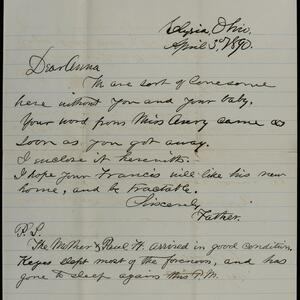 Elyria, Ohio,
April 3d 1890.
Dear Anna
We are sort of lonesome
here without you and your baby.
Your word from Miss Avery came as
soon as you got away.
I enclose it herewith.
I hope your Francis will like his new
home, and be tractable.
Sincerely
Father.
P.S.
The Mother & Paul H. arrived in good condition.
Keyes slept most of the forenoon, and has
gone to sleep again this P.M.